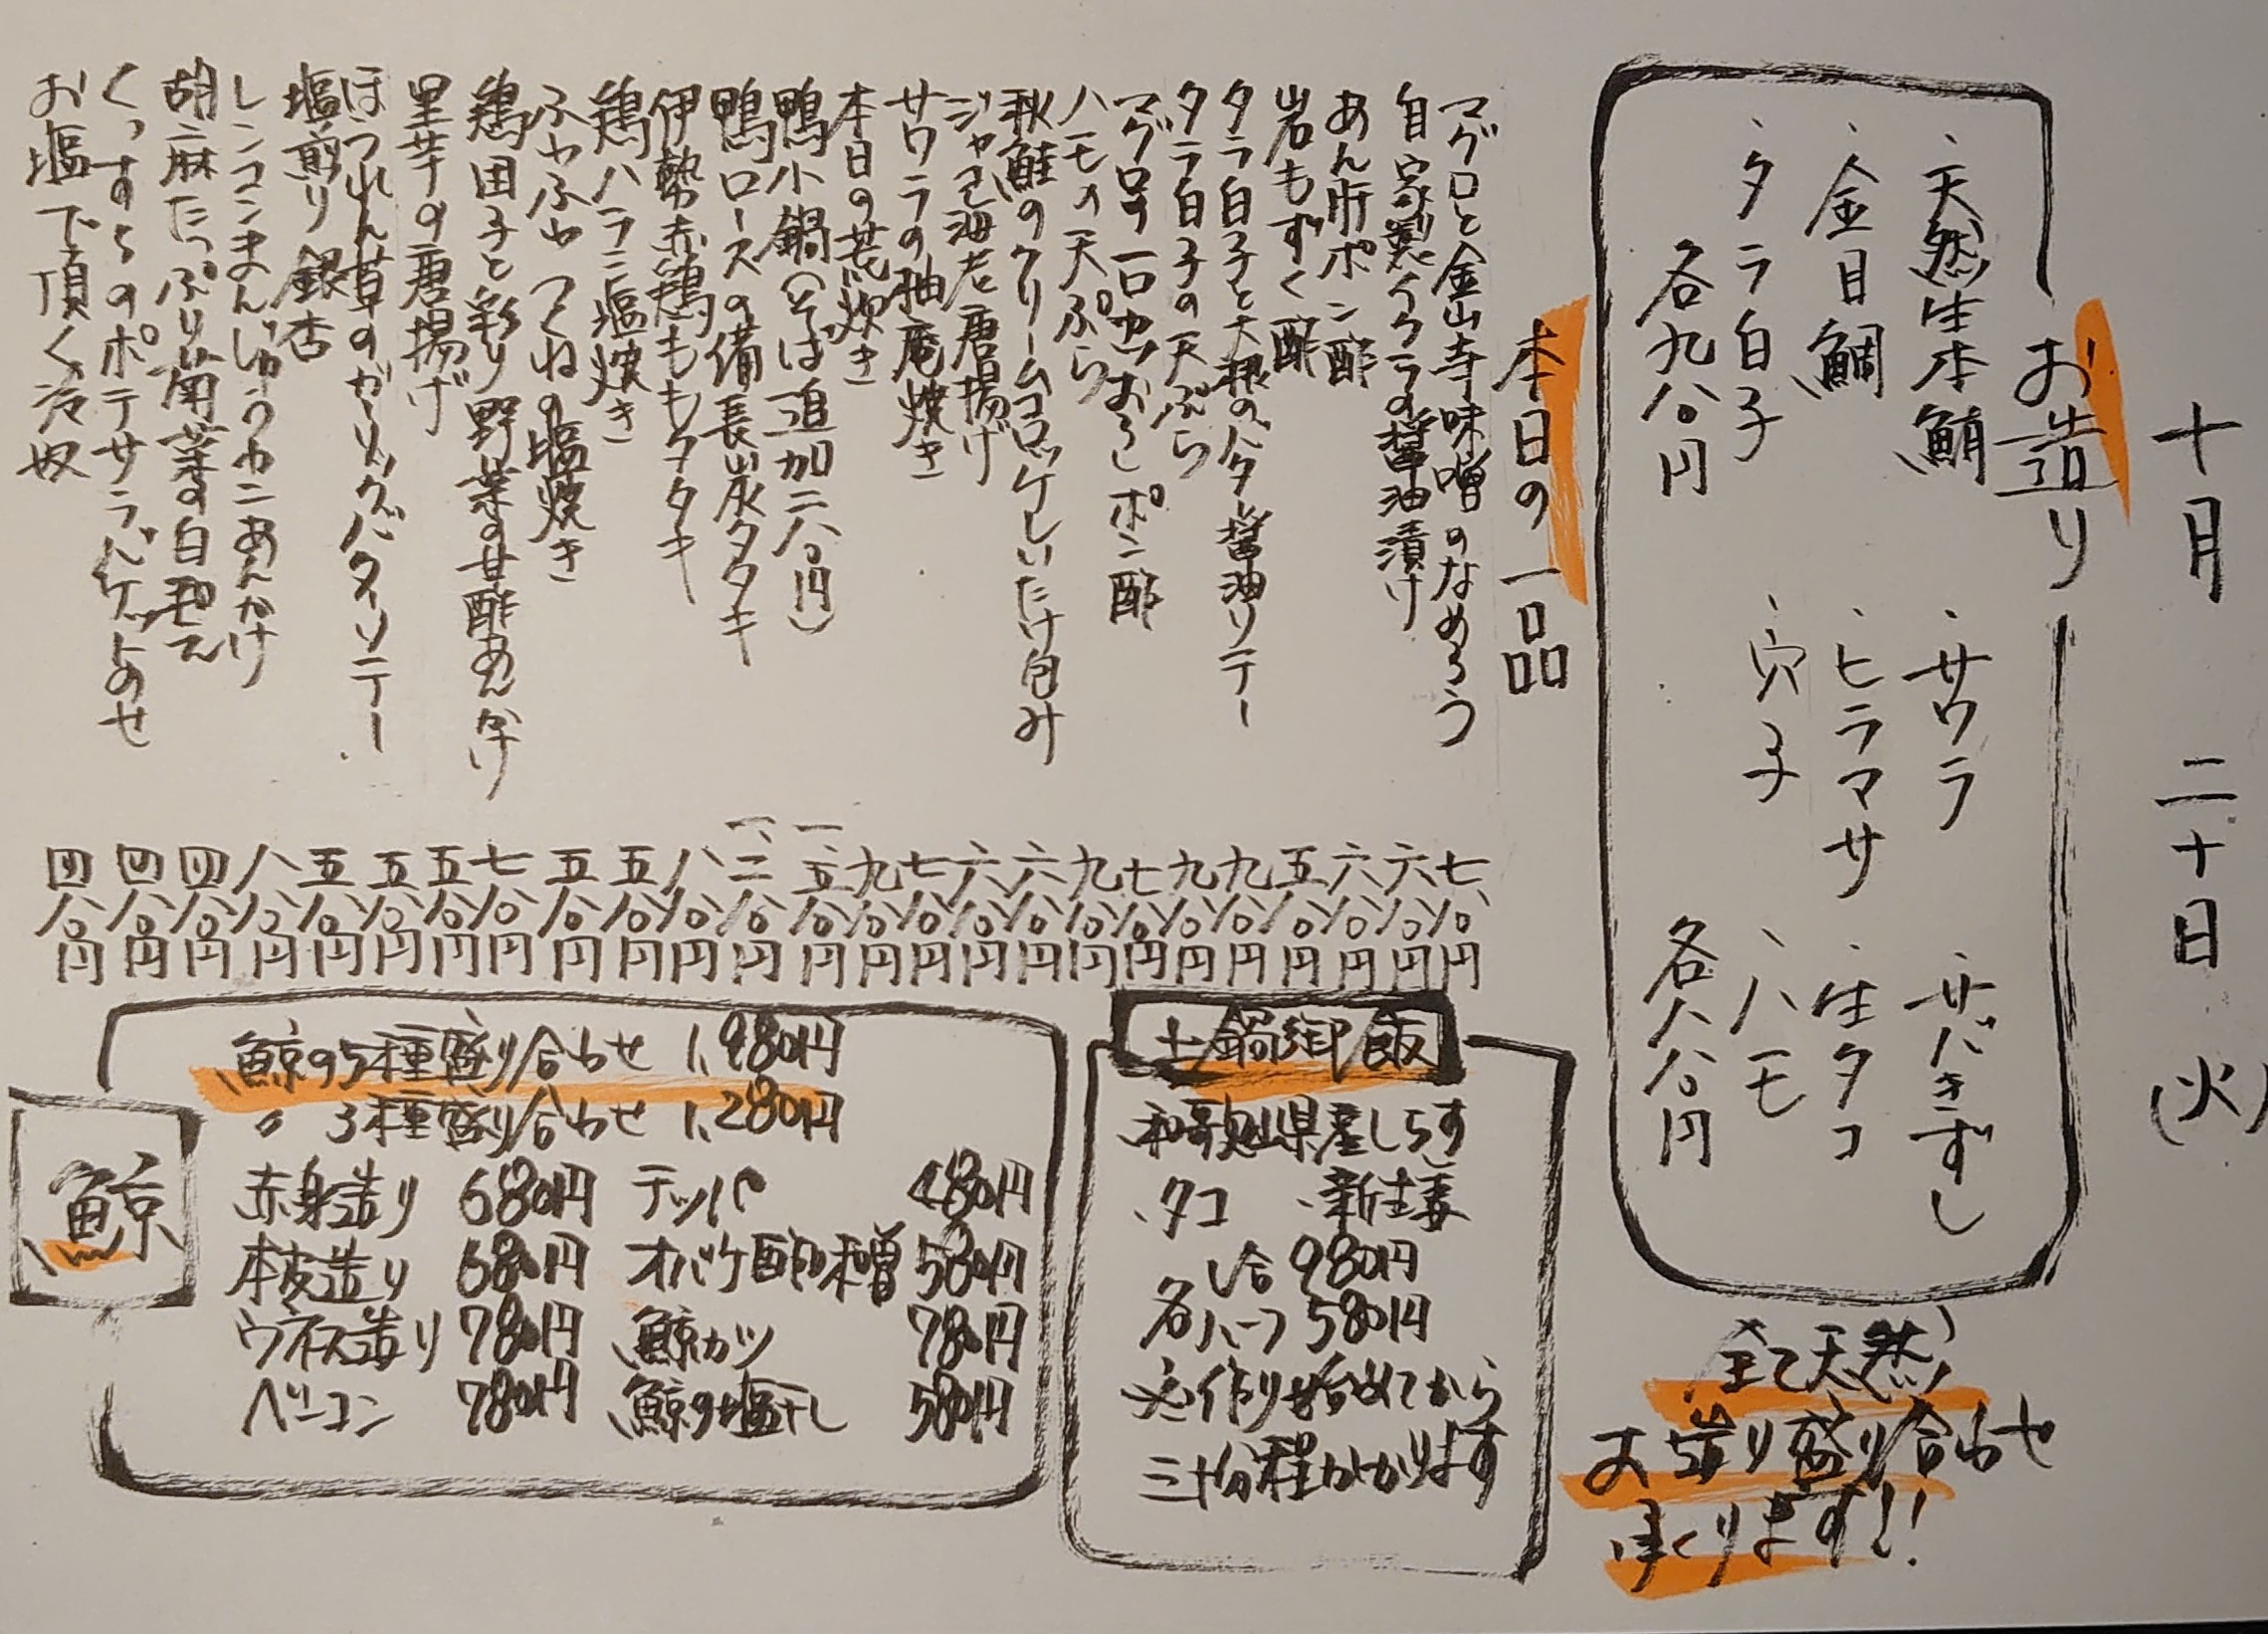 十月 二十日(火)
お造り
・天然生本鮪 ・サワラ ・サバきずし
・金目鯛 ・ヒラマサ ・生タコ
・タラ白子 ・穴子 ・ハモ
各九八〇円 各八八〇円
全て天然
お造り盛り合わせ
承ります!!
本日の一品
マグロと金山寺味噌のなめろう 七八〇円
自家製イクラの醤油漬け 六八〇円
あん肝ポン酢 六八〇円
岩もずく酢 五八〇円
タラ白子と大根のバター醤油ソテー 九八〇円
タラ白子の天ぷら 九八〇円
マグロの一口カツおろしポン酢 七八〇円
ハモの天ぷら 九八〇円
秋鮭のクリームコロッケしいたけ包み 六八〇円
ジャコ海老唐揚げ 六八〇円
サワラの柚庵焼き 七八〇円
本日の荒炊き 九八〇円
鴨小鍋(そば追加二八〇円) 一、五八〇円
鴨ロースの備長炭タタキ 一、二八〇円
伊勢赤鶏ももタタキ 八八〇円
鶏ハラミ塩焼き 五八〇円
ふわふわつくねの塩焼き 五八〇円
鶏団子と彩り野菜の甘酢あんかけ 七八〇円
里芋の唐揚げ 五八〇円
ほうれん草のガーリックバターソテー 五八〇円
塩煎り銀杏 五八〇円
レンコンまんじゅうカニあんかけ 八八〇円
胡麻たっぷり菊菜の白和え 四八〇円
くっすらのポテサラバゲットのせ 四八〇円
お塩で頂く冷奴 四八〇円
土鍋御飯
・和歌山県産しらす
・タコ ・新生姜
一合 980円
各ハーフ 580円
※作り始めてから
三十分程かかります
鯨
鯨の5種盛り合わせ 1,980円
〃 3種盛り合わせ 1,280円
赤身造り 680円 テッパ 480円
本皮造り 680円 オバケ酢味噌 580円
ウネス造り 780円 鯨カツ 780円
ベーコン 780円 鯨の塩干し 580円